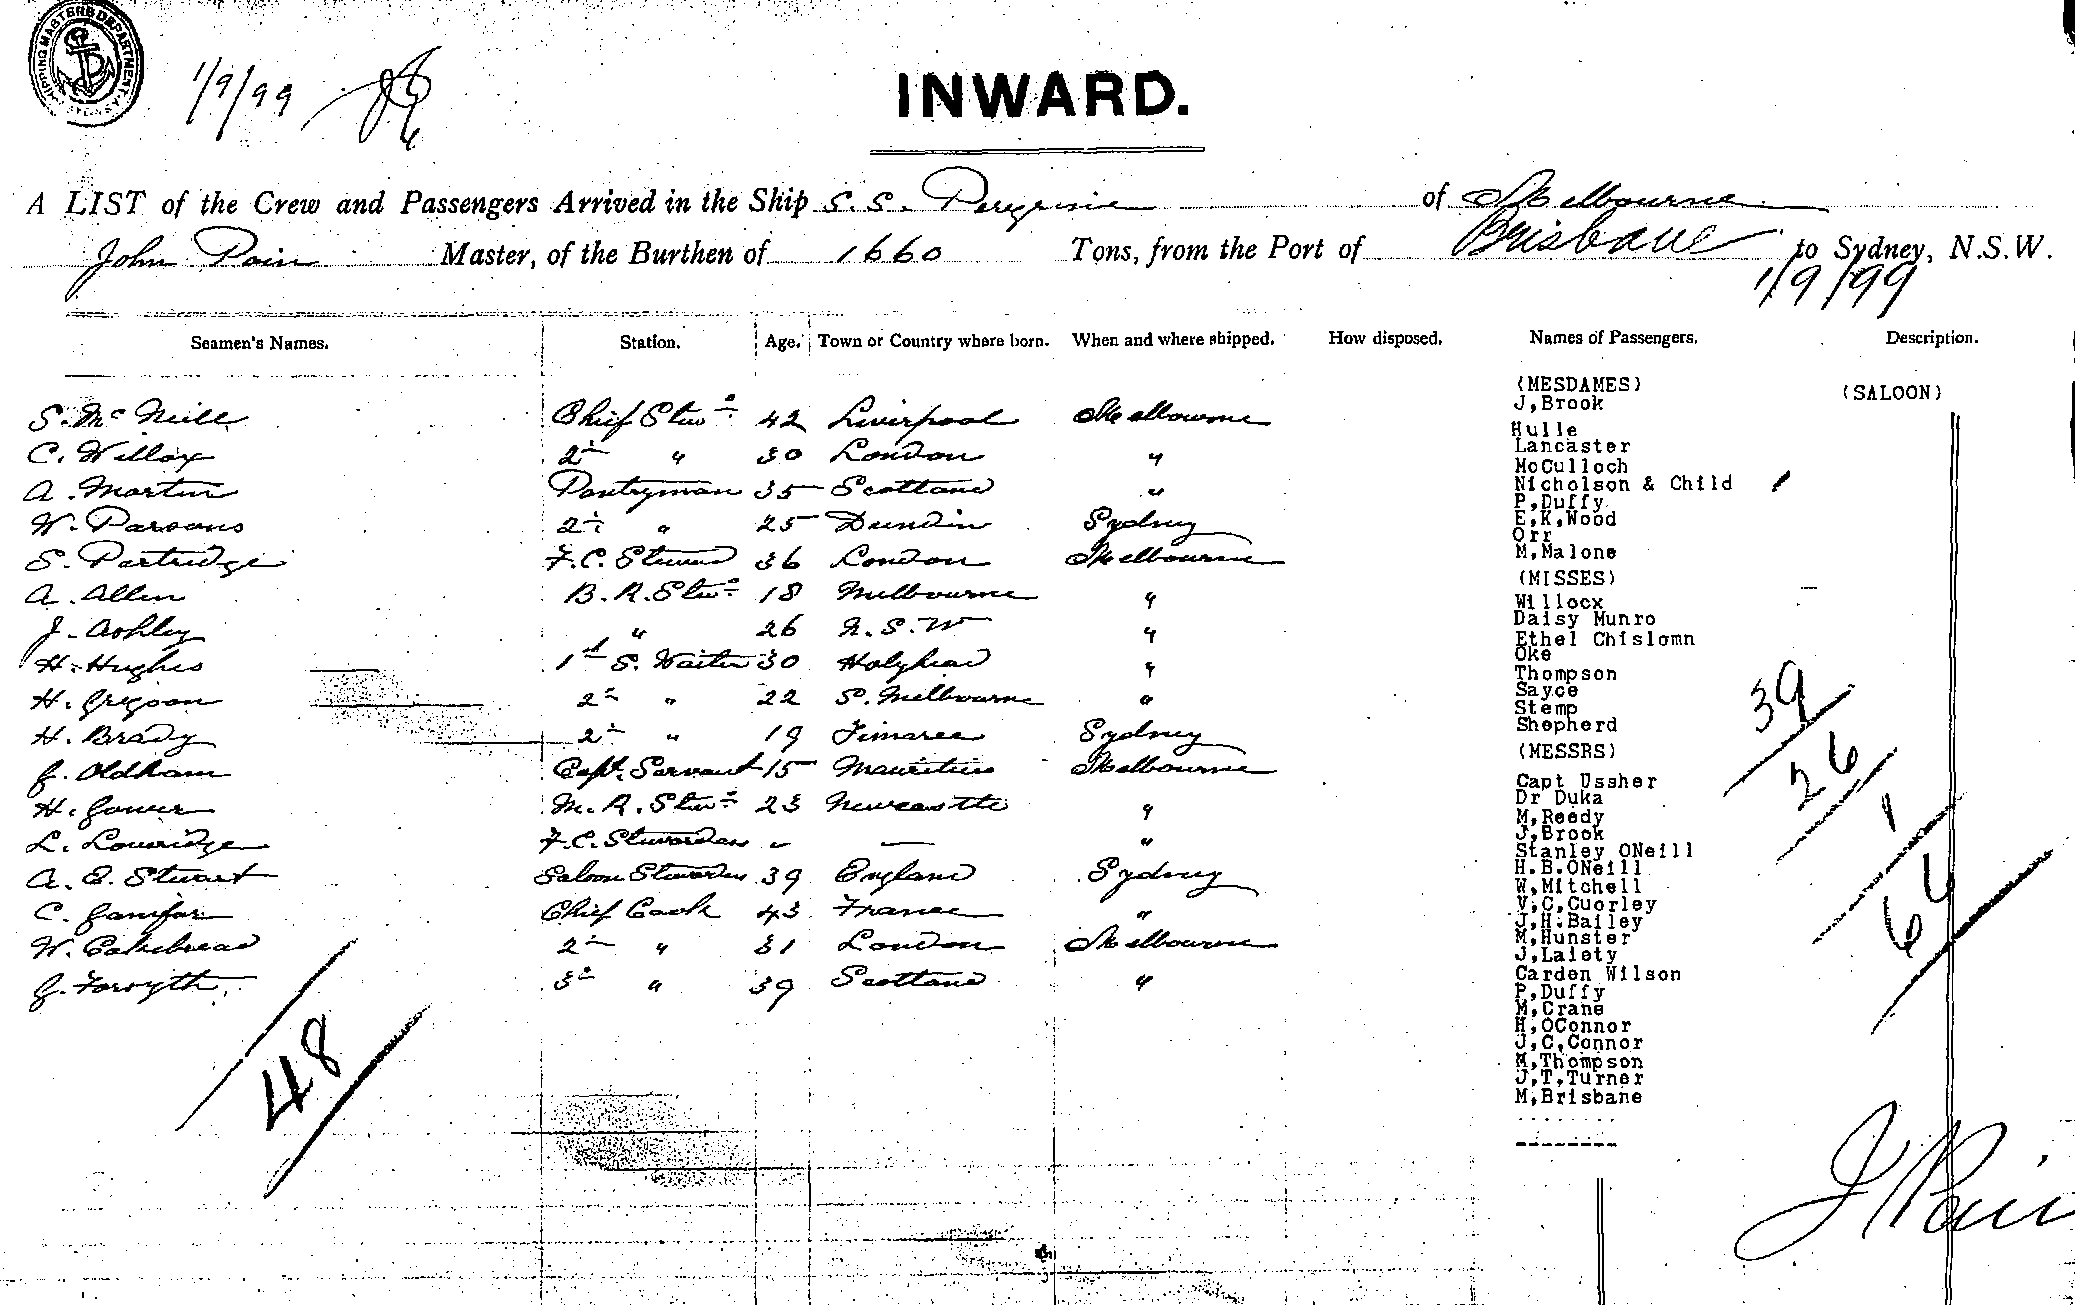 SHIPPING MASTERS DEPARTMENT
1/9/99
INWARD.
A LIST of the Crew and Passengers Arrived in the Ship S.S. Peregrine of Melbourne
John Pain Master, of the Burthen of 1660 Tons, from the Port of Brisbane to Sydney, N.S.W.
1/9/99
Seamen's Names. Station. Age. Town or Country where born. When and where shipped. How disposed. Names of Passengers. Description.
S. McNeill Chief Stwd 42 Liverpool Melbourne
C. Willox 2nd " 30 London "
A. Martin Pantryman 35 Scotland "
W. Parsons 2nd " 25 Sydney
S. Partridge F.C. Steward 36 London Melbourne
A. Allen B.R. Stwd 18 Melbourne "
J. Ashley " 26 N.S.W "
H. Hughes 1st S. Waiter 30 Holyhead "
H. Gregson 2nd " 22 S. Melbourne "
H. Brady 2nd " 19 Sydney
G. Oldham Capt. Servant 15 Mauritius Melbourne
H. Gower M.R. Stwd 23 Newcastle "
L. Loveridge F.C. Stewardess " — "
A. E. Stewart Saloon Stewardess 39 England Sydney
C. Chief Cook 43 France "
W. Cakebread 2nd " 31 London Melbourne
G. Forsyth 3rd " 39 Scotland "
48
(MESDAMES) (SALOON)
J,Brook
Hulle
Lancaster
McCulloch
Nicholson & Child 1
P,Duffy
E,K,Wood
Orr
M,Malone
(MISSES)
Willocx
Daisy Munro
Ethel Chislomn
Oke
Thompson
Sayce
Stemp
Shepherd
(MESSRS)
Capt Ussher
Dr Duka
M,Reedy
J,Brook
Stanley ONeill
H.B.ONeill
W,Mitchell
V,C,Cuorley
J,H.Bailey
M,Hunster
J,Laiety
Carden Wilson
P,Duffy
M,Crane
H,OConnor
J,C,Connor
M,Thompson
J,T,Turner
M,Brisbane
39
26
1
66
J Pain